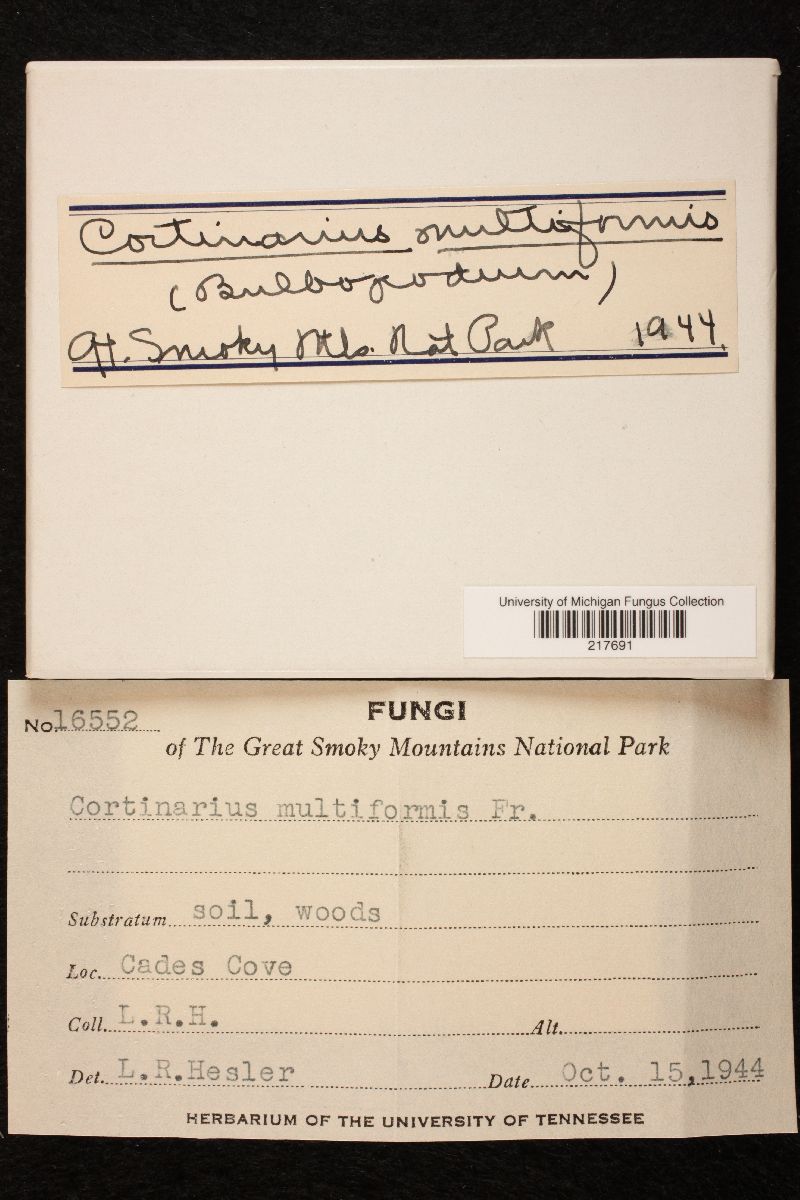 Cortinarius multiformis
(Bulbopodium)
Gt. Smoky Mts. Nat Park 1944.
University of Michigan Fungus Collection
217691
FUNGI
No. 16552
of The Great Smoky Mountains National Park
Cortinarius multiformis Fr.
Substratum soil, woods
Loc. Cades Cove
Coll. L.R.H. Alt.
Det. L.R.Hesler Date Oct. 15,1944
HERBARIUM OF THE UNIVERSITY OF TENNESSEE